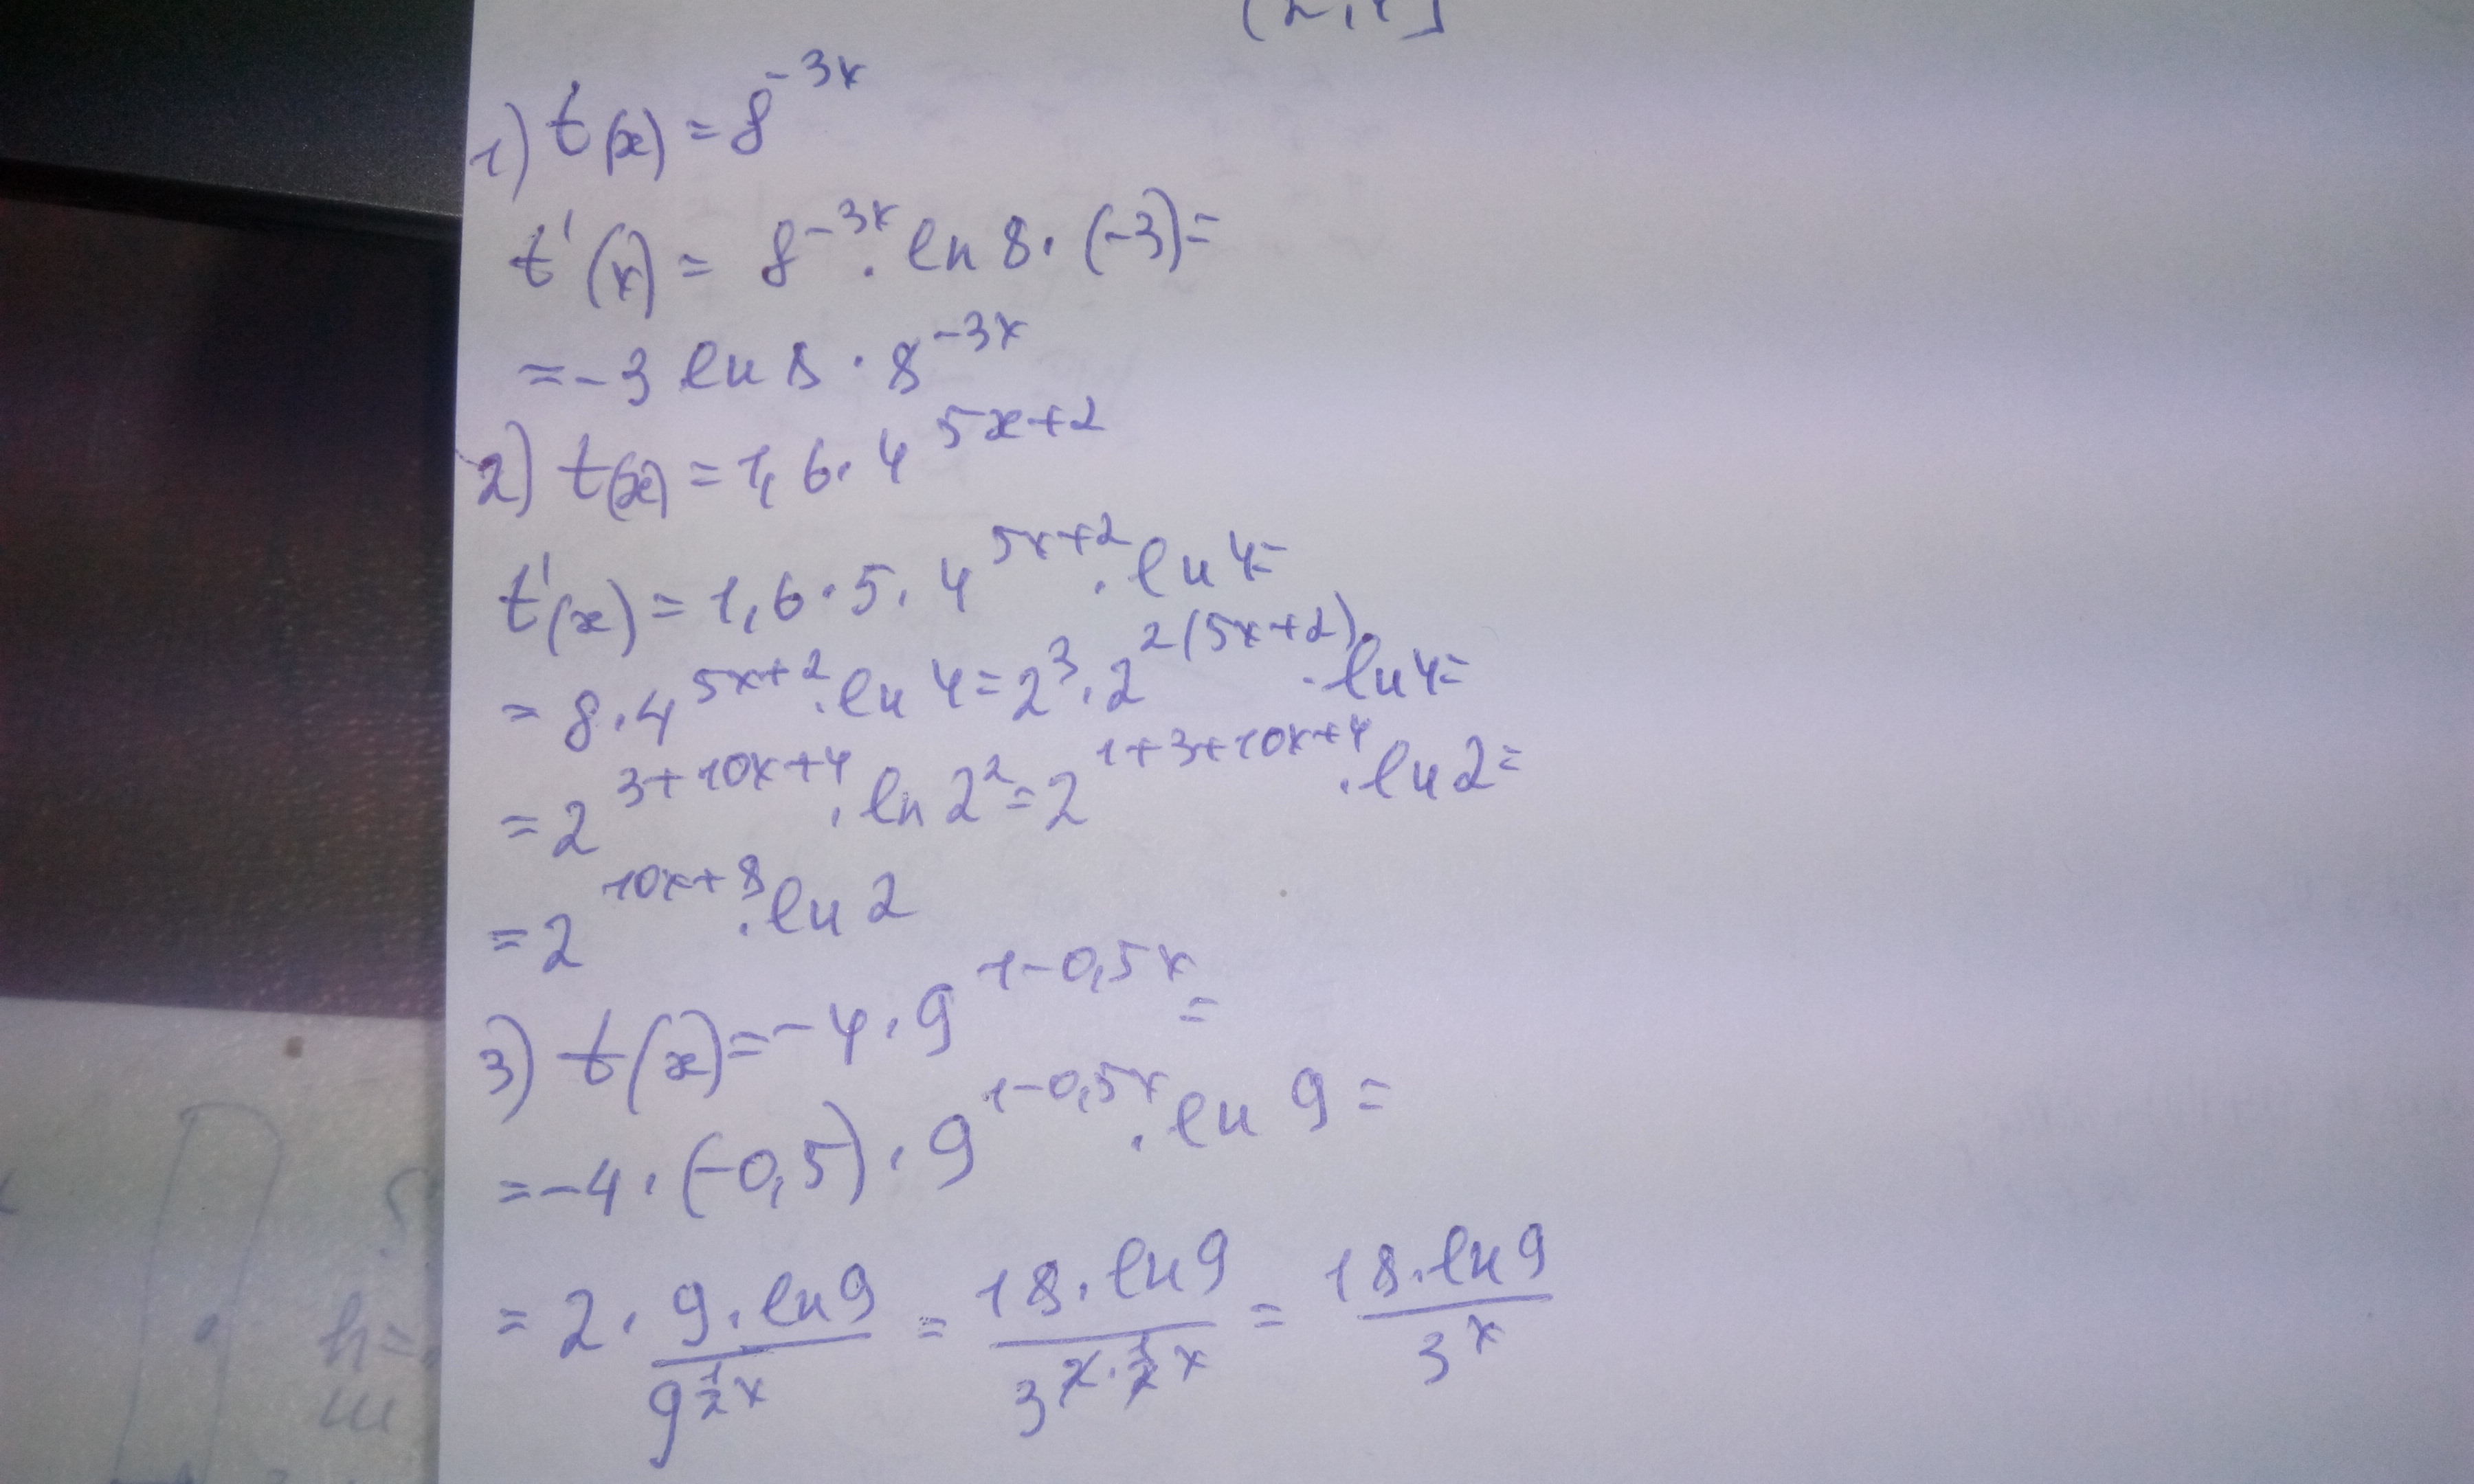 1) t(x) = 8^{-3x}
t'(x) = 8^{-3x} · ln 8 · (-3) =
= -3 ln 8 · 8^{-3x}
2) t(x) = 1,6 · 4^{5x+2}
t'(x) = 1,6 · 5 · 4^{5x+2} · ln 4 =
= 8 · 4^{5x+2} · ln 4 = 2^3 · 2^{2(5x+2)} · ln 4 =
= 2^{3+10x+4} · ln 2^2 = 2^{1+3+10x+4} · ln 2 =
= 2^{10x+8} · ln 2
3) t(x) = -4 · 9^{1-0,5x} =
= -4 · (-0,5) · 9^{1-0,5x} · ln 9 =
= 2 · \frac{9 · ln 9}{9^{\frac{1}{2}x}} = \frac{18 · ln 9}{3^{2 · \frac{1}{2}x}} = \frac{18 · ln 9}{3^x}
h=